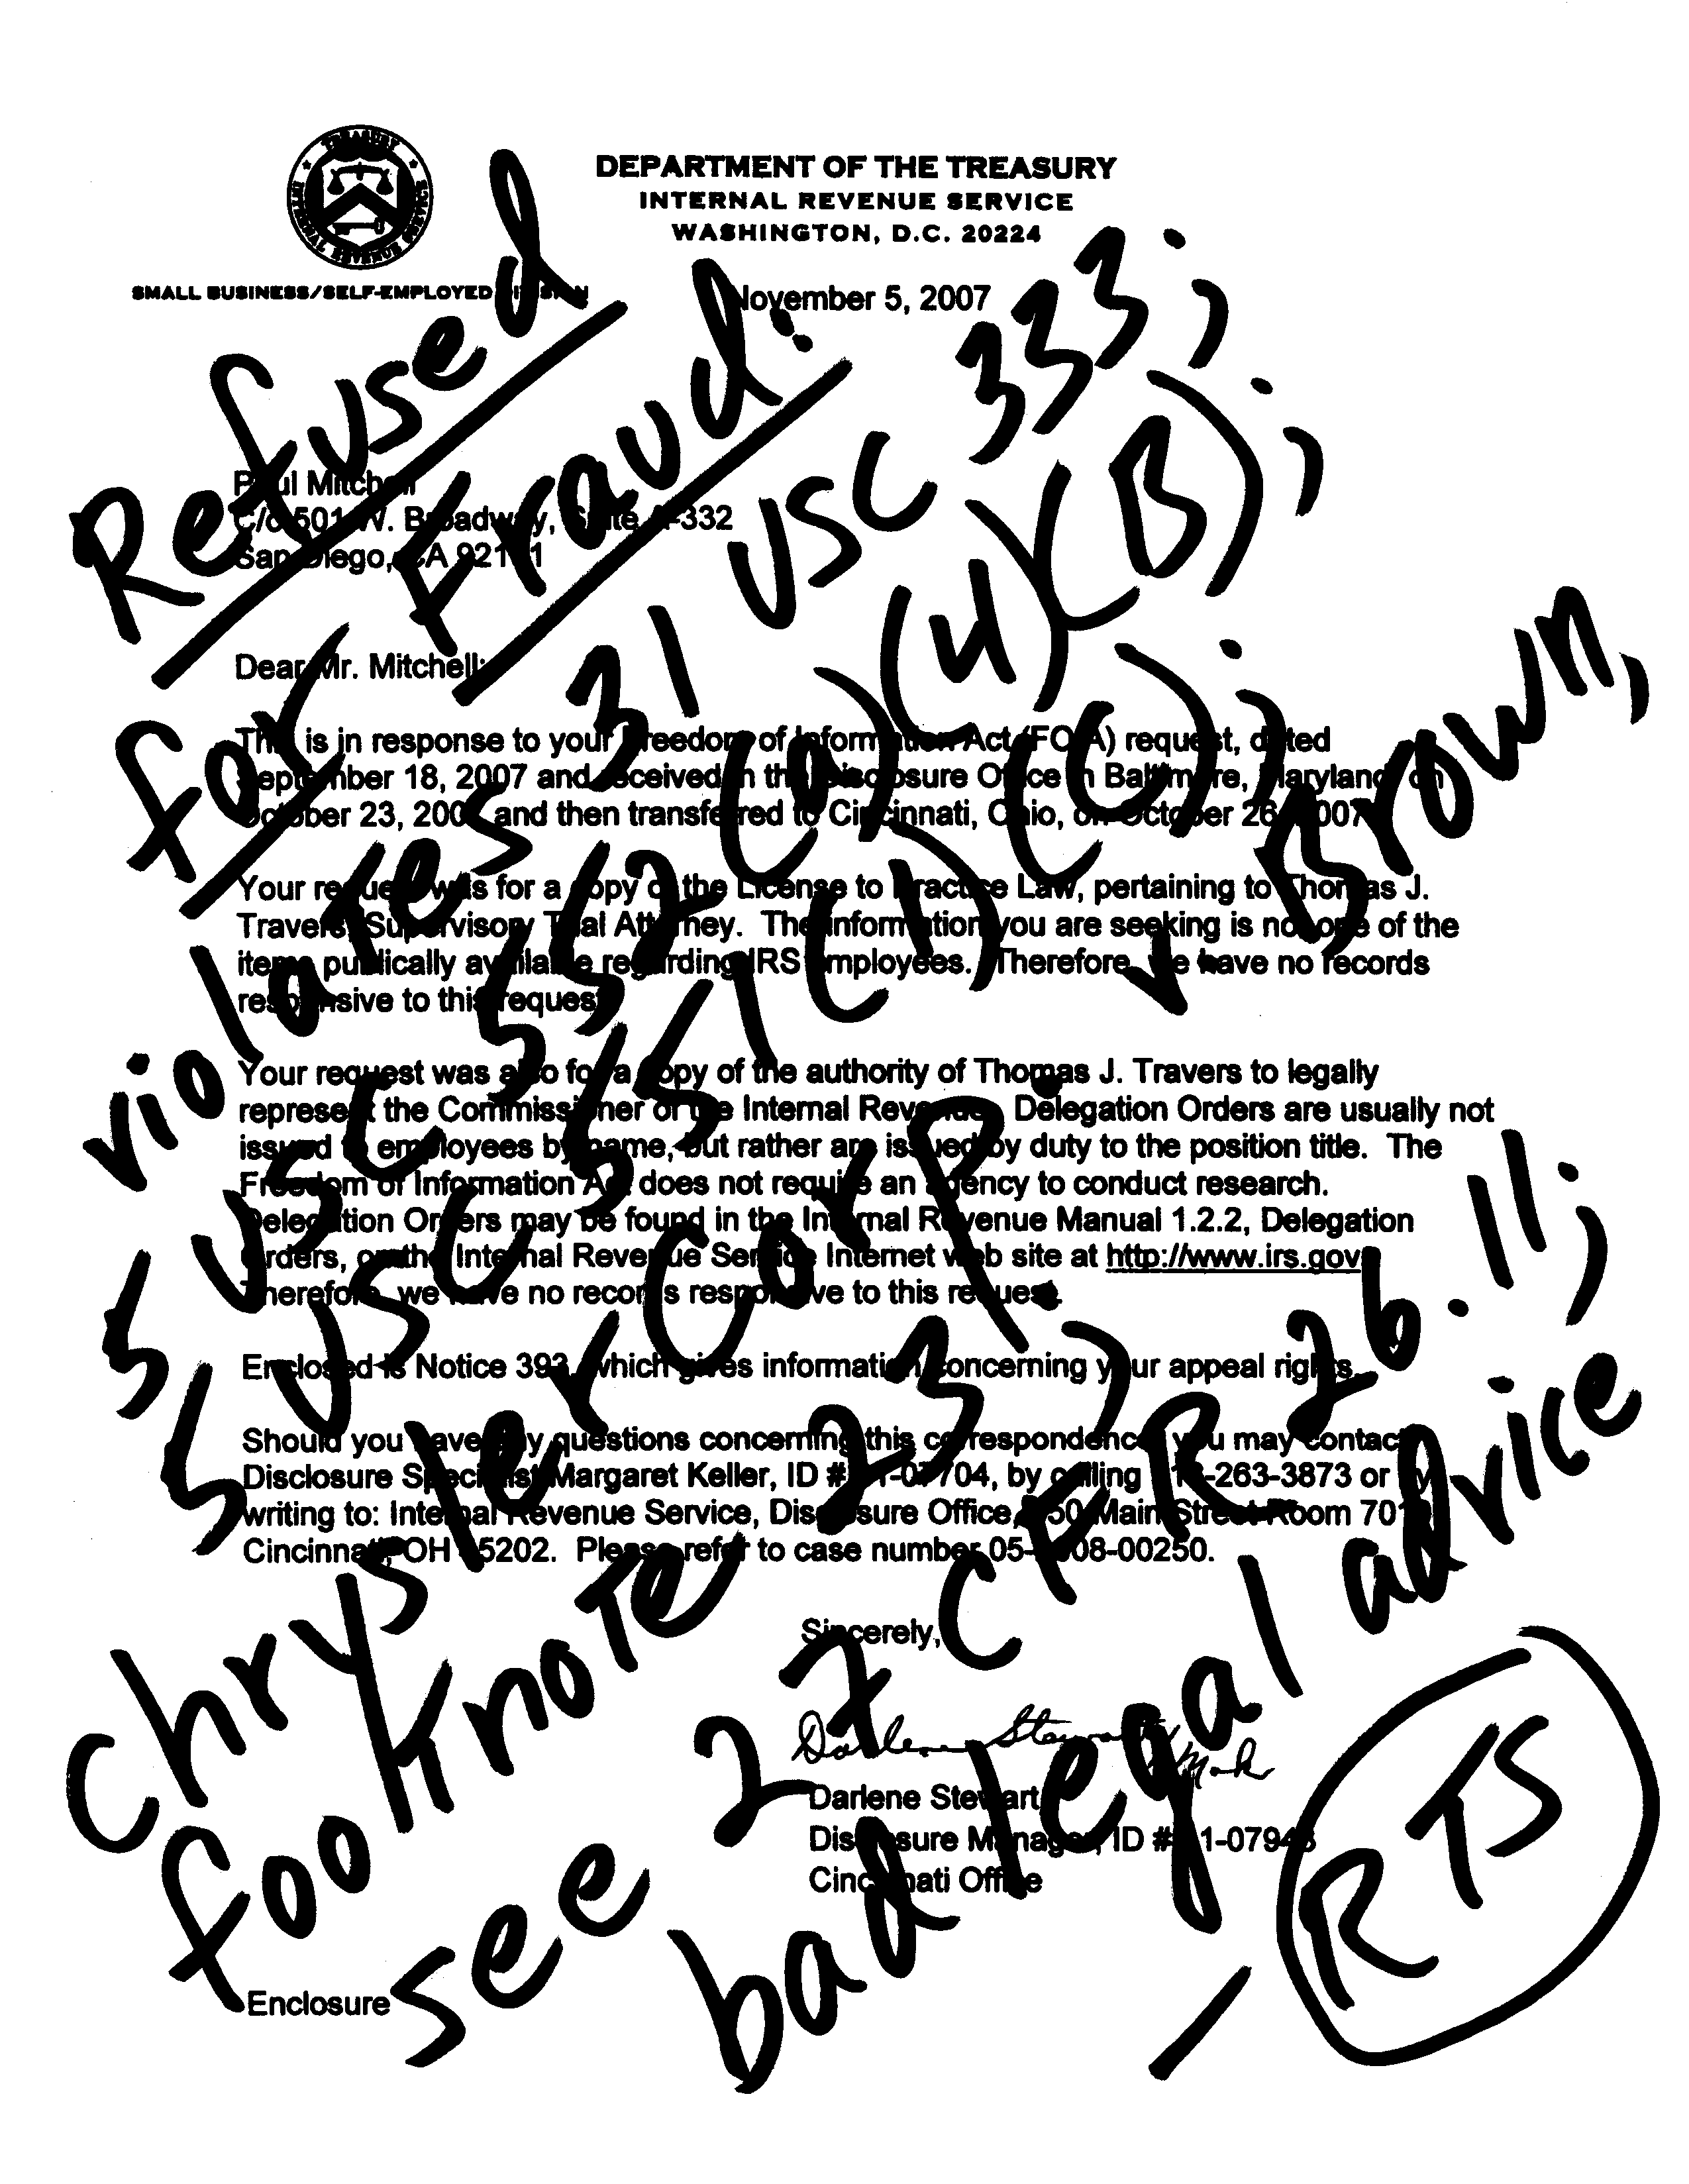 DEPARTMENT OF THE TREASURY
INTERNAL REVENUE SERVICE
WASHINGTON, D.C. 20224
SMALL BUSINESS/SELF-EMPLOYED DIVISION
November 5, 2007
Paul Mitchell
C/o 501 W. Broadway, Suite A-332
San Diego, CA 92101
Dear Mr. Mitchell:
This is in response to your Freedom of Information Act (FOIA) request, dated
September 18, 2007 and received in the Disclosure Office in Baltimore, Maryland, on
October 23, 2007 and then transferred to Cincinnati, Ohio, on October 26, 2007
Your request was for a copy of the License to Practice Law, pertaining to Thomas J.
Travers, Supervisory Trial Attorney. The information you are seeking is not one of the
items publically available regarding IRS employees. Therefore, we have no records
responsive to this request.
Your request was also for a copy of the authority of Thomas J. Travers to legally
represent the Commissioner of the Internal Revenue. Delegation Orders are usually not
issued to employees by name, but rather are issued by duty to the position title. The
Freedom of Information Act does not require an agency to conduct research.
Delegation Orders may be found in the Internal Revenue Manual 1.2.2, Delegation
Orders, on the Internal Revenue Service Internet web site at http://www.irs.gov
Therefore, we have no records responsive to this request.
Enclosed is Notice 393, which gives information concerning your appeal rights.
Should you have any questions concerning this correspondence, you may contact
Disclosure Specialist Margaret Keller, ID # by calling 263-3873 or by
writing to: Internal Revenue Service, Disclosure Office, 550 Main Street Room
Cincinnati, OH 45202. Please refer to case number 05-2008-00250.
Sincerely,
Darlene Stewart
Darlene Stewart
Disclosure Manager, ID #
Cincinnati Office
Enclosure
Refused
for Fraud:
violates 31 USC 333;
5 USC 552(a)(4)(B);
5 USC 551(1)(C);
Chrysler Corp v. Brown,
footnote 23;
see 27 CFR 26.11;
bad legal advice
- RTS